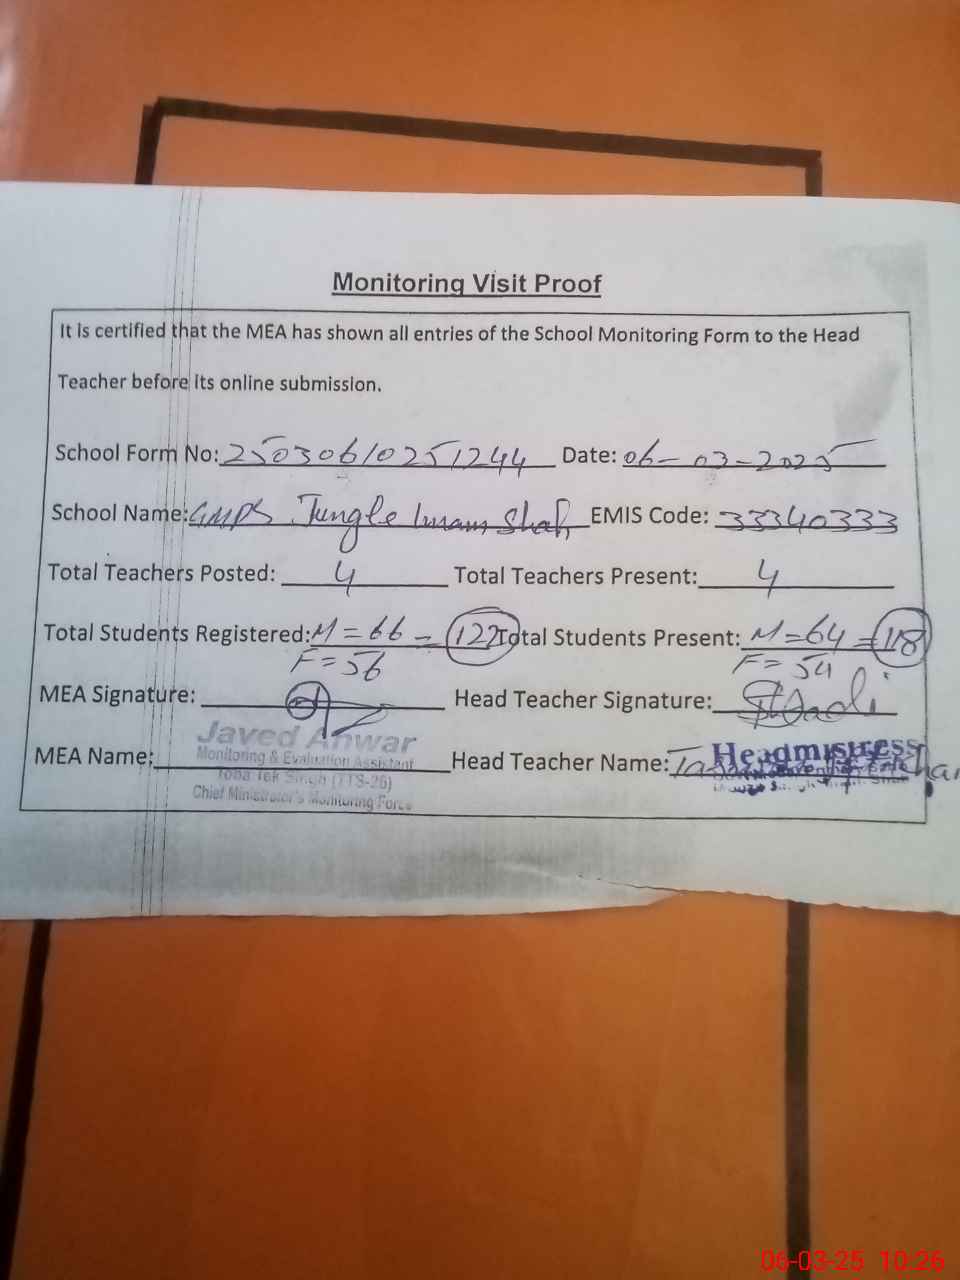 Monitoring Visit Proof
It is certified that the MEA has shown all entries of the School Monitoring Form to the Head
Teacher before its online submission.
School Form No: 25030610251244 Date: 06-03-2025
School Name: GMPS Jungle Imam Shah EMIS Code: 33340333
Total Teachers Posted: 4 Total Teachers Present: 4
Total Students Registered: M=66 = 122 Total Students Present: M=64 = 118
F=56 F=54
MEA Signature: Head Teacher Signature:
Javed Anwar
MEA Name: Monitoring & Evaluation Assistant Head Teacher Name: Headmistress
Toba Tek Singh (TTS-26)
Chief Minister's Monitoring Force
06-03-25 10:26